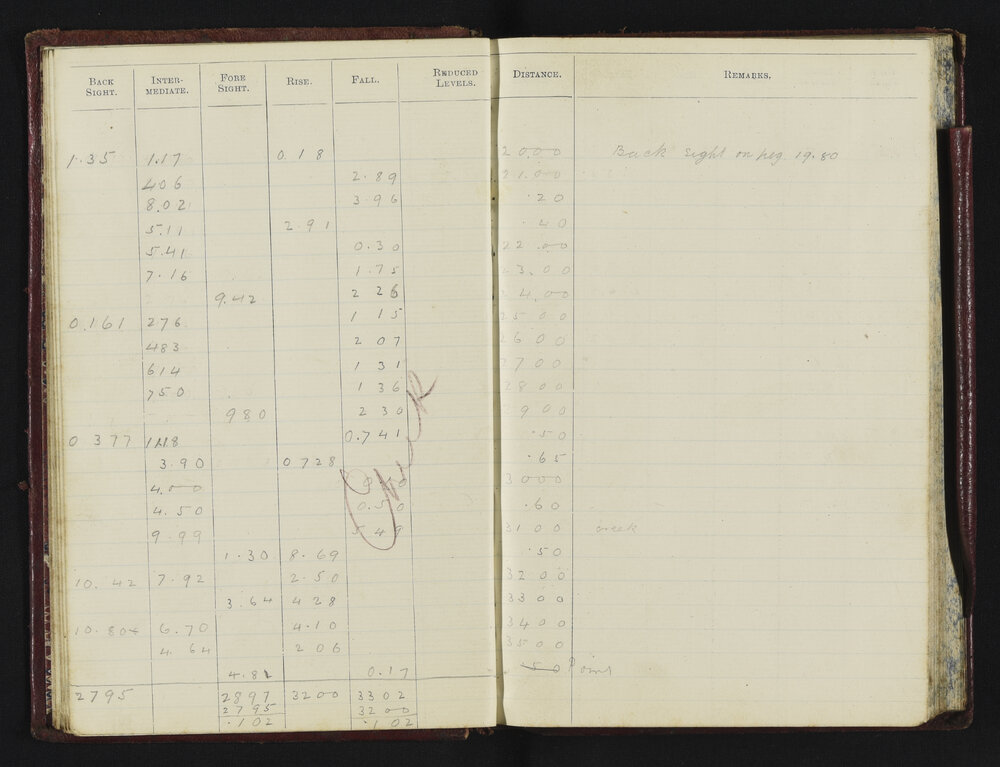 BACK SIGHT. INTER-MEDIATE. FORE SIGHT. RISE. FALL. REDUCED LEVELS. DISTANCE. REMARKS.
1.35 1.17 0.18 20.00 Back sight on peg 19.80
4 06 2.89 21.00
8.02 3.96 .20
5.11 2.91 .40
5.41 0.30 22.00
7.16 1.75 23.00
9.42 2 26 24.00
0.161 2 76 1 15 25 00
4 83 2 07 26 00
6 14 1 31 27 00
7 50 1 36 28 00
9 80 2 30 29 00
0 377 1118 0.741 .50
3.90 0 728 .65
4.00 30 00
4.50 0.50 .60
9.99 5 49 31 00 creek
1.30 8.69 .50
10.42 7.92 2.50 32 00
3.64 4 28 33 00
10.804 6.70 4.10 34 00
4.64 2 06 35 00
4.81 0.17 .50 omit
27 95 28 97 32 00 33 02
27 95 32 00
.1 02 .1 02
Check